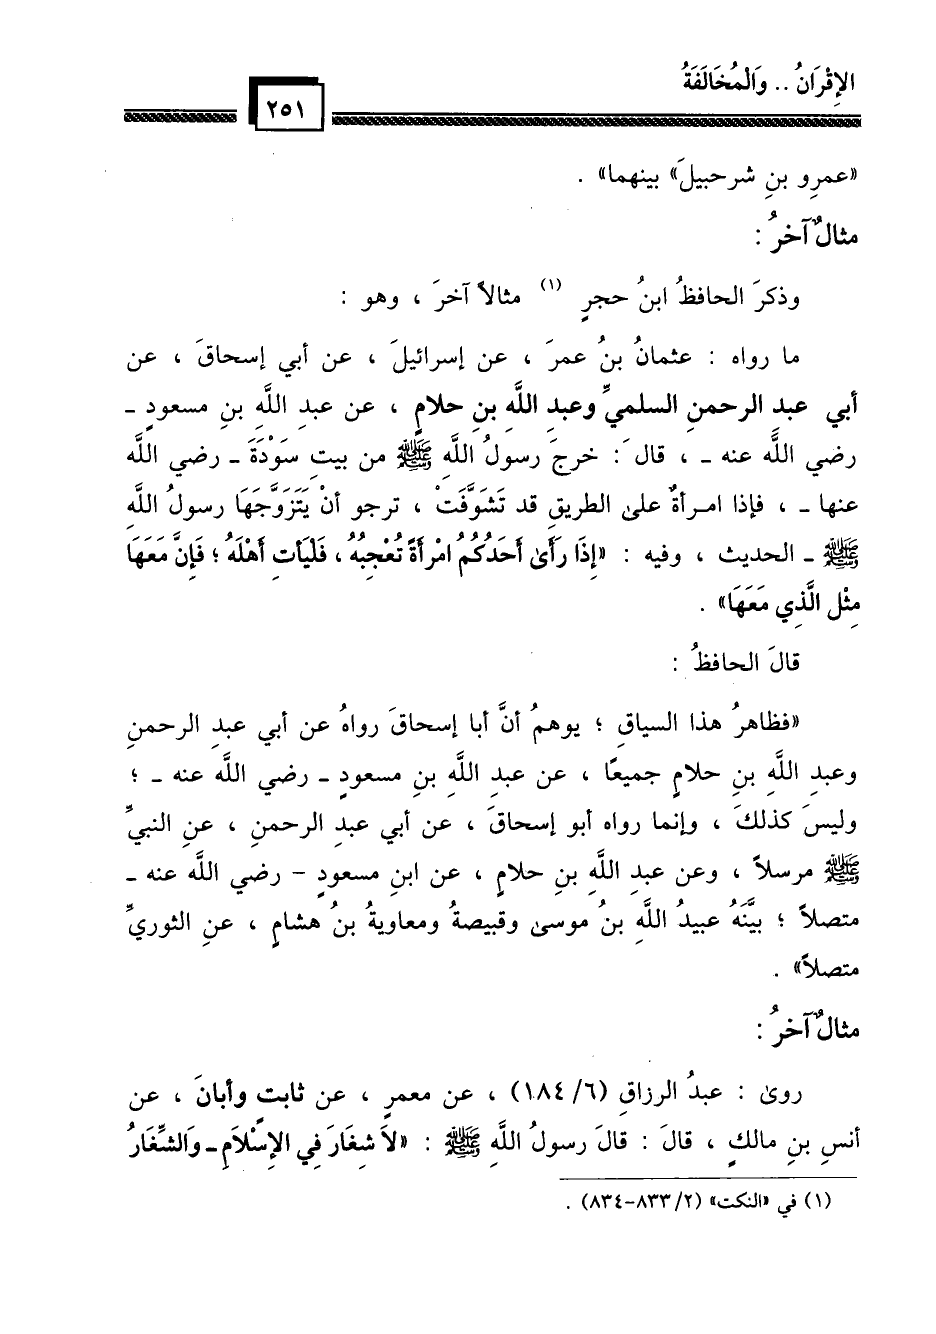 الإِقْرَانُ .. وَالْمُخَالَفَةُ
٢٥١
«عمرِو بنِ شرحبيلَ» بينهما» .
مثالٌ آخرُ :
وذكرَ الحافظُ ابنُ حجرٍ (١) مثالاً آخرَ ، وهو :
ما رواه : عثمانُ بنُ عمرَ ، عن إسرائيلَ ، عن أبي إسحاقَ ، عن
أبي عبد الرحمنِ السلميِّ وعبدِ اللَّهِ بنِ حلامٍ ، عن عبدِ اللَّهِ بنِ مسعودٍ ـ
رضي اللَّه عنه ـ ، قالَ : خرجَ رسولُ اللَّهِ ﷺ من بيتِ سَوْدَةَ ـ رضي اللَّه
عنها ـ ، فإذا امرأةٌ على الطريقِ قد تَشَوَّفَتْ ، ترجو أنْ يَتَزَوَّجَهَا رسولُ اللَّهِ
ﷺ ـ الحديث ، وفيه : «إِذَا رَأَىٰ أَحَدُكُمُ امْرأَةً تُعْجِبُهُ ، فَلْيَأتِ أَهْلَهُ ؛ فَإِنَّ مَعَهَا
مِثْلَ الَّذِي مَعَهَا» .
قالَ الحافظُ :
«فظاهرُ هذا السياقِ ؛ يوهمُ أنَّ أبا إسحاقَ رواهُ عن أبي عبدِ الرحمنِ
وعبدِ اللَّهِ بنِ حلامٍ جميعًا ، عن عبدِ اللَّهِ بنِ مسعودٍ ـ رضي اللَّه عنه ـ ؛
وليسَ كذلكَ ، وإنما رواه أبو إسحاقَ ، عن أبي عبدِ الرحمنِ ، عنِ النبيِّ
ﷺ مرسلاً ، وعن عبدِ اللَّهِ بنِ حلامٍ ، عن ابنِ مسعودٍ - رضي اللَّه عنه ـ
متصلاً ؛ بيَّنَهُ عبيدُ اللَّهِ بنُ موسى وقبيصةُ ومعاويةُ بنُ هشامٍ ، عنِ الثوريِّ
متصلاً» .
مثالٌ آخرُ :
روىٰ : عبدُ الرزاقِ (٦/ ١٨٤) ، عن معمرٍ ، عن ثابتٍ وأبانَ ، عن
أنسِ بنِ مالكٍ ، قالَ : قالَ رسولُ اللَّهِ ﷺ : «لاَ شِغَارَ فِي الإِسْلاَمِ ـ وَالشِّغَارُ
(١) في «النكت» (٢/ ٨٣٣-٨٣٤) .